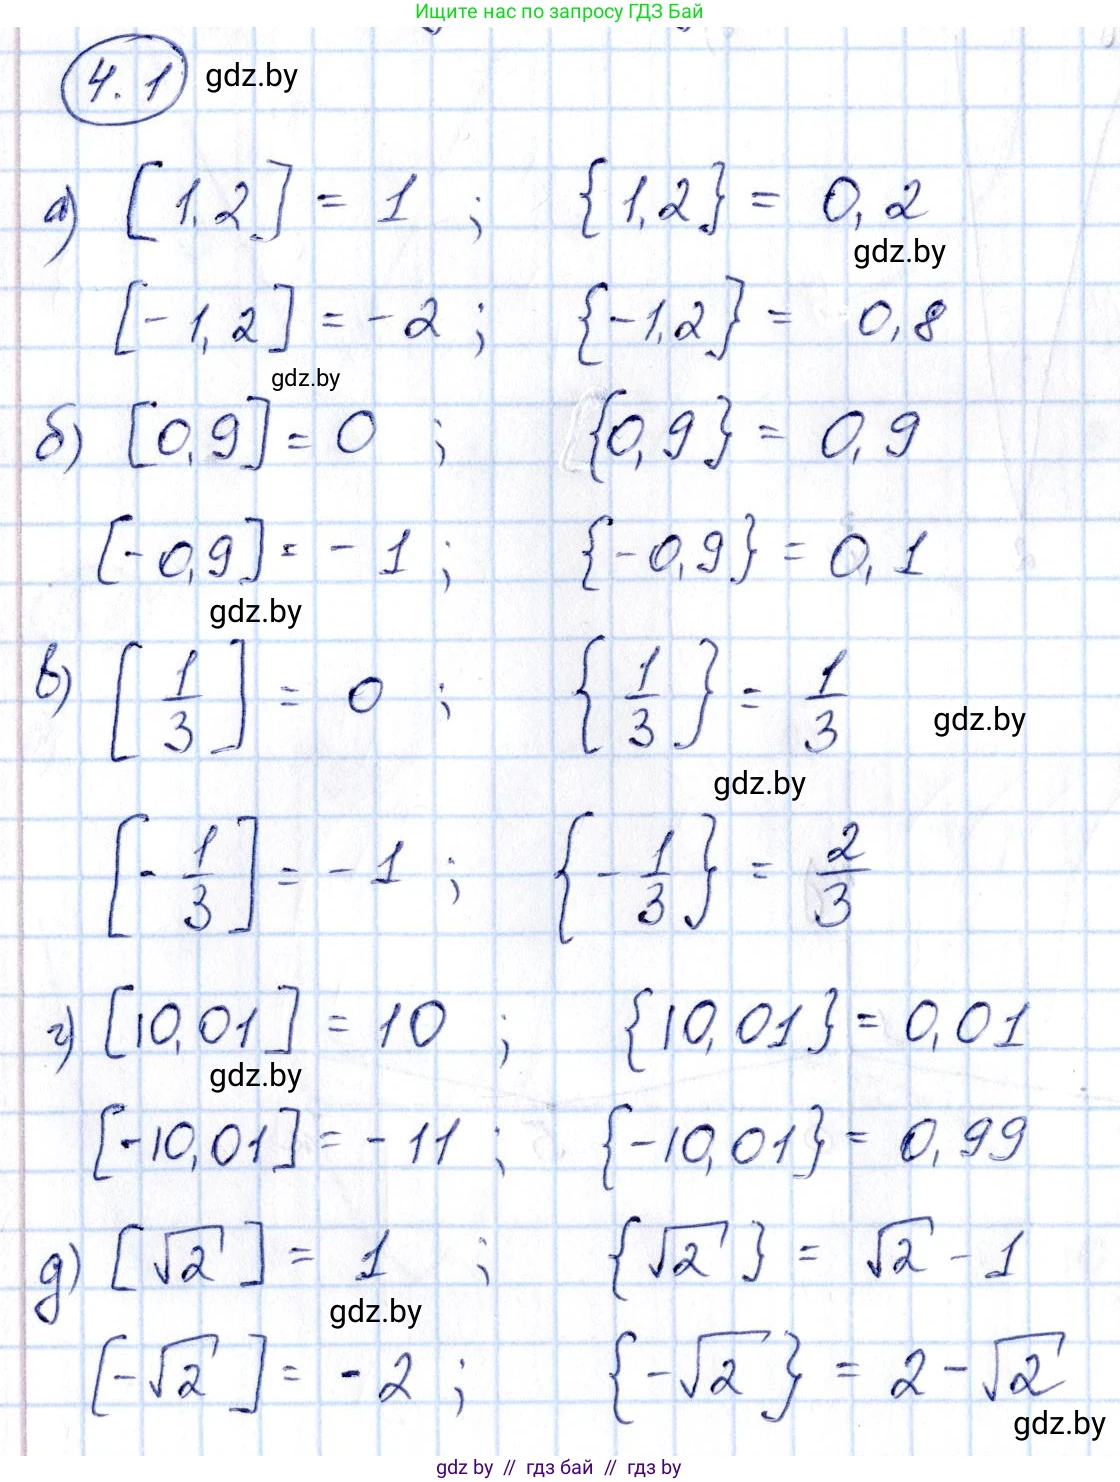 Ищите нас по запросу ГДЗ Бай
4.1 gdz.by
а) [1,2] = 1 ; {1,2} = 0,2
gdz.by
[-1,2] = -2 ; {-1,2} = 0,8
gdz.by
б) [0,9] = 0 ; {0,9} = 0,9
[-0,9] = -1 ; {-0,9} = 0,1
gdz.by
в) [1/3] = 0 ; {1/3} = 1/3
gdz.by
gdz.by
[-1/3] = -1 ; {-1/3} = 2/3
г) [10,01] = 10 ; {10,01} = 0,01
gdz.by
[-10,01] = -11 ; {-10,01} = 0,99
д) [√2] = 1 ; {√2} = √2 - 1
gdz.by
[-√2] = -2 ; {-√2} = 2 - √2
gdz.by
gdz by // гдз бай // гдз by